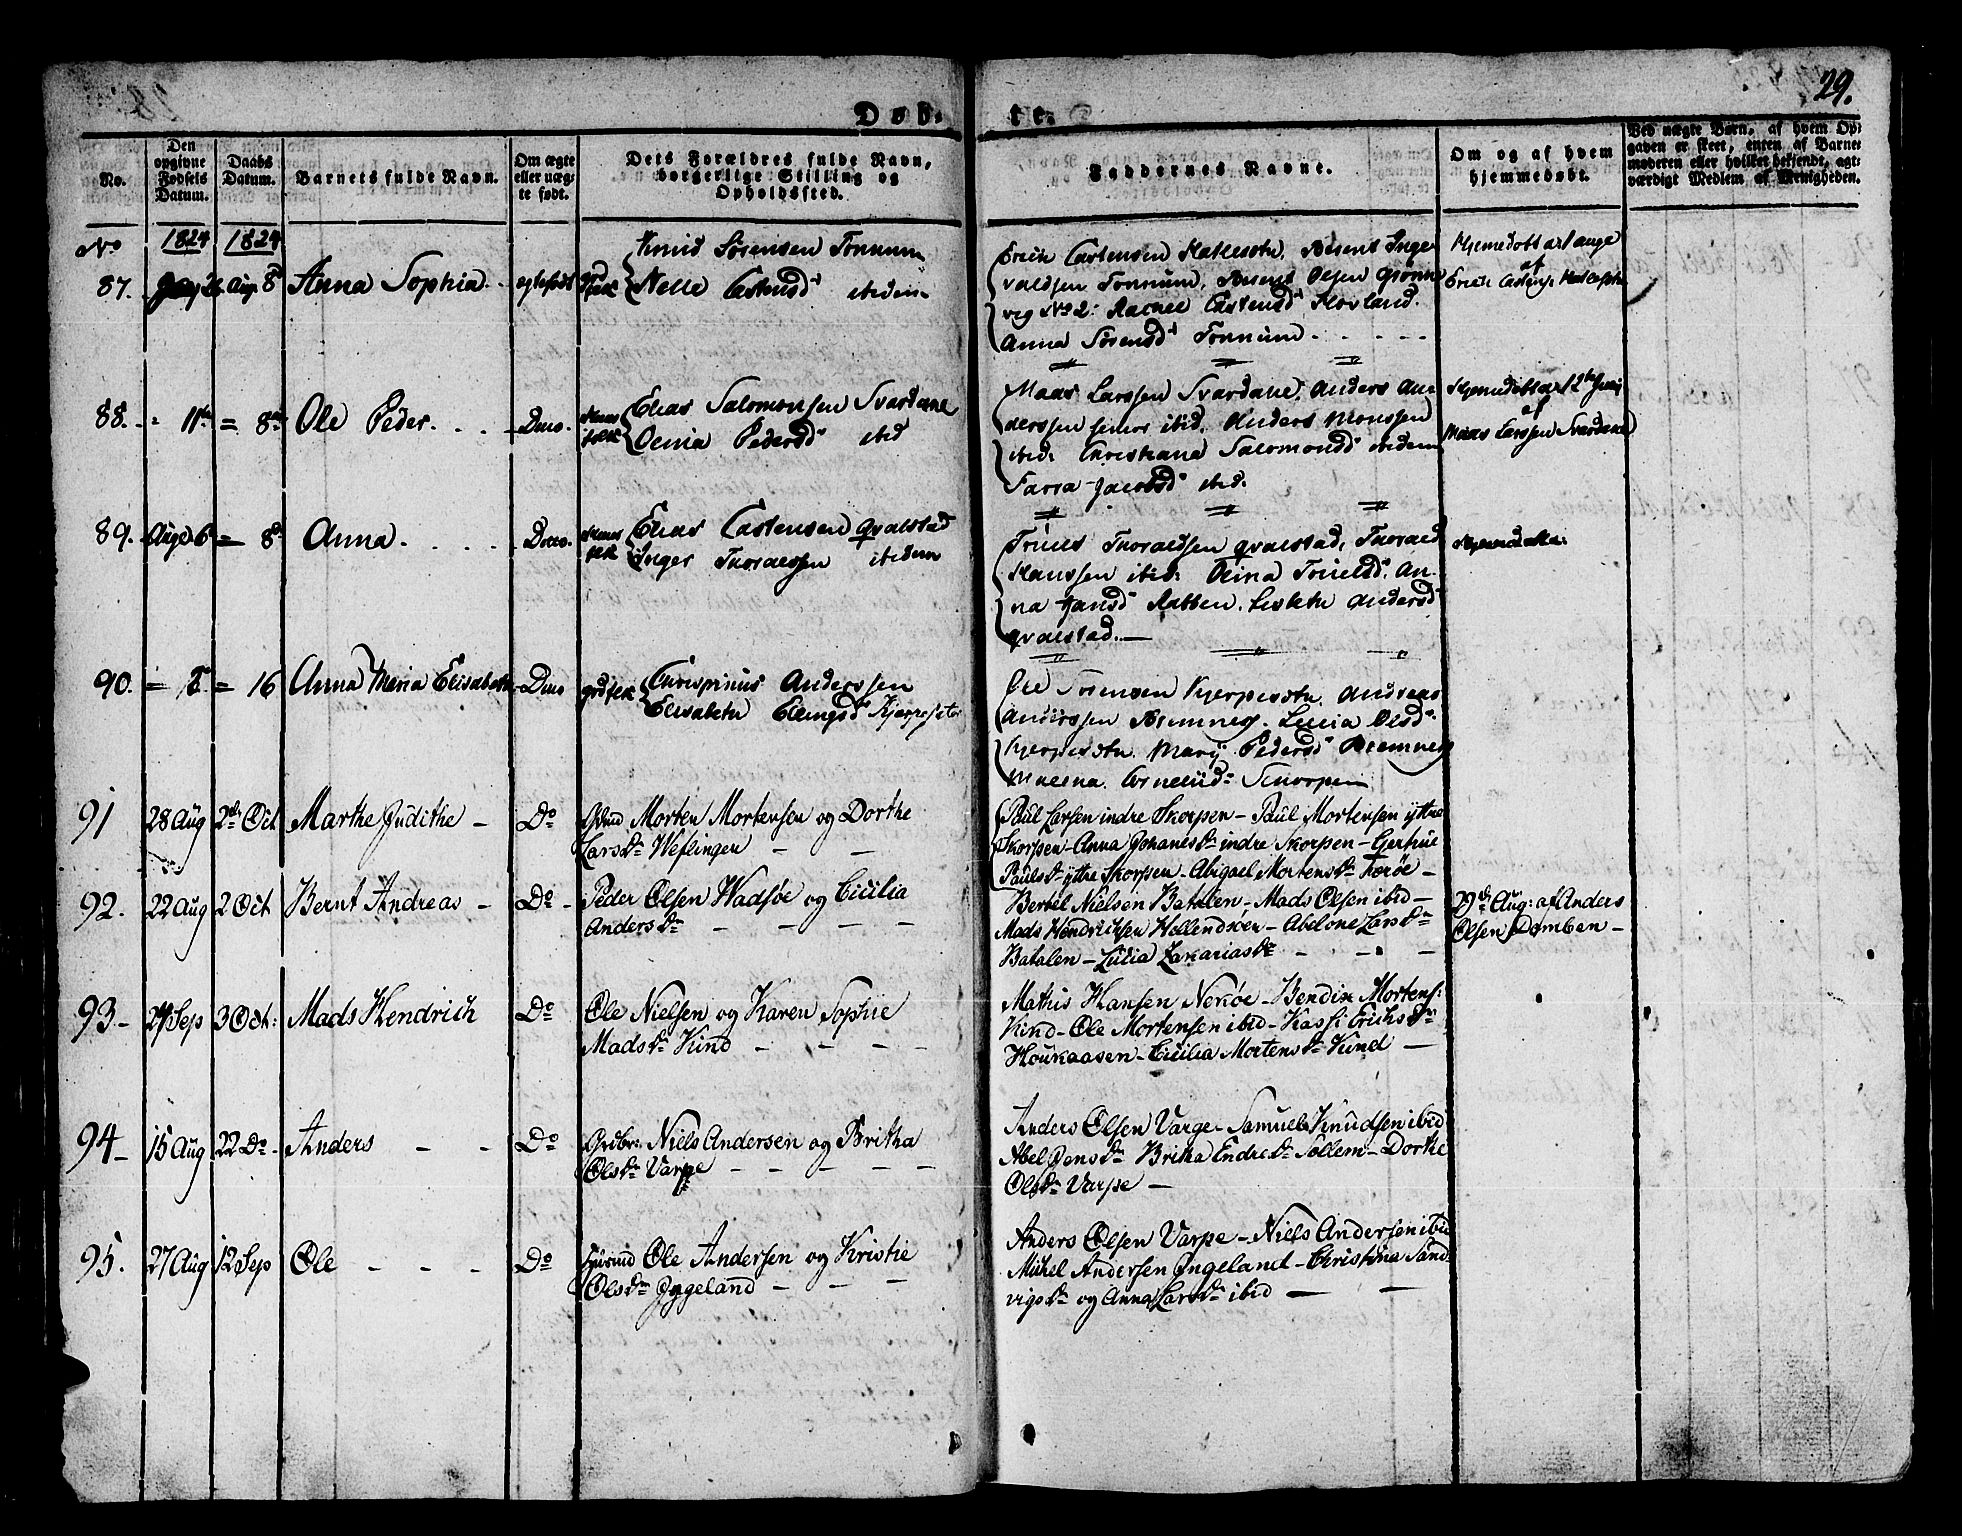 29.
Døb-
te.
No.
Den opgivne Fødsels Datum.
Daabs Datum.
Barnets fulde Navn.
Om ægte eller uægte født.
Dets Forældres fulde Navn, borgerlige Stilling og Opholdssted.
Faddernes Navne.
Om og af hvem hjemmedøbt.
Ved uægte Barn, af hvem Opgaven er skeet, enten af Barnemoderen eller hvilket bekjendt, agtværdigt Medlem af Menigheden.
No 1824 1824
87. Aug 8 Anna Sophia
Knud Sørensen Tonnum
Nelle Castensd ibidem
Erich Castensen Hallesétn, Arent Inge-
valdsen Tonnum, Arent Olsen Grønn-
vig No 2: Rachel Castensd Hovland.
Anna Sørensd Tonnum
af
88. 11te = 8de Ole Peder. Ditto.
Elias Salomonsen Svardahl
Olina Pedersd ibid
Maas Larssen Svardahl, Anders An-
derssen senior ibid, Anders Monssen
ibid: Christiana Salomonsd ibidem
Sarra Jacobsd ibid.
Hjemedøbt
af
Maas Larssen Svardahl
89. Aug 6 = 8de Anna. Ditto.
Elias Castensen Qvalstad
Inger Thoraldsen ibidem
Truels Thoraldsen Qvalstad, Thorald
Hanssen ibid: Olina Truelsd. An-
na Hansd Ratten. Lisbeth Andersd
Qvalstad.
90. = = 16 Anna Maria Elisabeth Ditto
Chrispinius Anderssen
Elisabeth Ellingsd Kjerpeset
Ole Sørensen Kjerpesetn. Andreas
Anderssen Bremnes. Lucia Olsd
Kjerpesetn. Mary Pedersd Bremnes
Malena Corneliid Skorpen
91 28 Aug 2de Oct Marthe Judithe - Do
Gbmd Morten Mortensen og Dorthe
Larsdr Weflingen - -
Paul Larsen indre Skorpen - Paul Mortensen yttre
Skorpen - Anna Johanesdr indre Skorpen - Gertrue
Paulsdr yttre Skorpen - Abigael Mortensdr Forøe -
92. 22 Aug 2 Oct Bernt Andreas - Do -
Peder Olsen Wadsøe og Cicilia
Andersdr - - - -
Bertel Nielsen Batalen - Mads Olsen ibid -
Mads Hendrichsen Hellendsøen - Abelone Larsdr
Batalen - Lucia Zakariasdr - - -
29de Aug: af Anders
Olsen Domben -
93 - 24 Sep 3 Oct: Mads Hendrich Do
Ole Nielsen og Karen Sophie
Madsdr Kind - - - -
Mathis Hansen Nekøe - Bendix Mortens:
Kind - Ole Mortensen ibid - Kassi Erichsdr
Houkaasen - Cicilia Mortensdr Kind -
94 - 15 Aug 22 Do - Anders - - Do
Grdbr: Niels Andersen og Britha
Olsdr Varpe - - - - -
Anders Olsen Varpe - Samuel Knudsen ibid
Abel Jensdr Britha Endresdr Sollem - Dorthe
Olsdr Varpe -
95. 27 Aug 12 Sep Ole - - - Do
Ole Andersen og Kristie
Olsdr Jygeland - - -
Anders Olsen Varpe - Niels Andersen ibid
Michel Andersen Jngeland - Christina Sand-
vigsdr og Anna Larsdr ibid - -